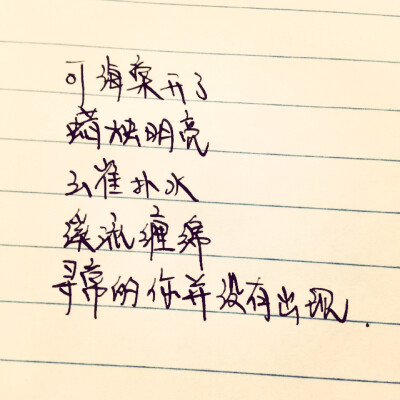 可海棠开了
明亮
云雀扑水
流缠绵
寻常的你并没有出现.